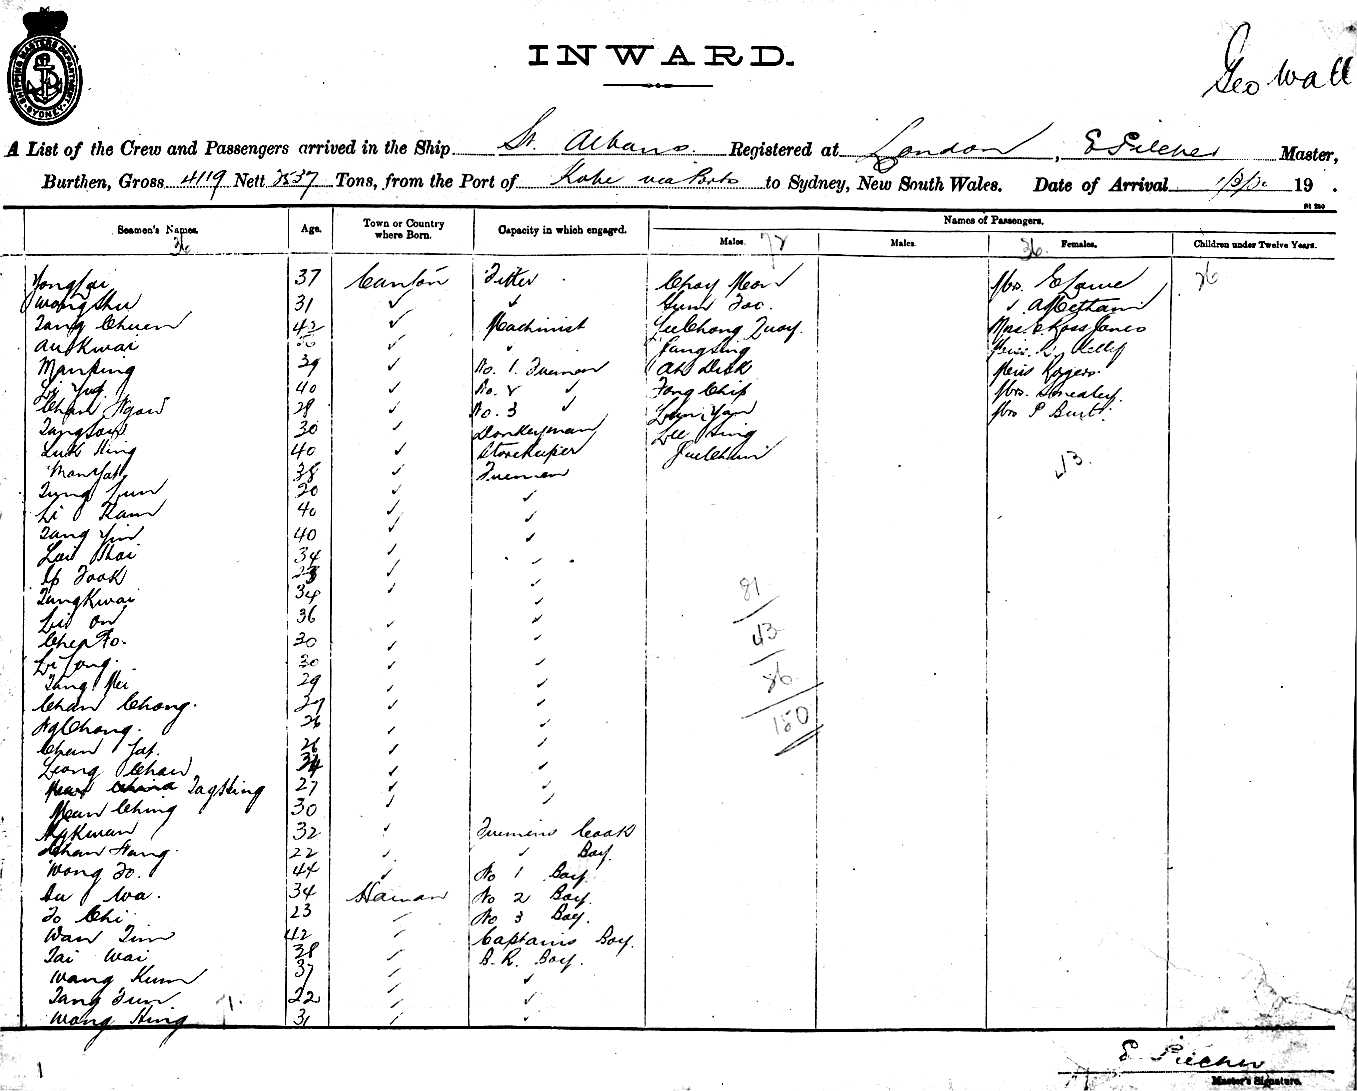 SHIPPING MASTERS DEPARTMENT SYDNEY
INWARD.
Geo Wall
A List of the Crew and Passengers arrived in the Ship St. Albans. Registered at London, E Pilcher Master,
Burthen, Gross 4119 Nett 2537 Tons, from the Port of Kobe via Ports to Sydney, New South Wales. Date of Arrival 19 .
Seamen's Names. Age. Town or Country where Born. Capacity in which engaged. Names of Passengers.
Males. Males. Females. Children under Twelve Years.
36 78 36
37 Canton Fitter Choy Mon Mrs. E Lowe
Wong Shu 31 ✓ ✓ ✓ A Metham
Tang Chuen 42 ✓ Machinist Lee Chong Quoy.
Au Kwai ✓ Fang Sing
Man Ping 39 ✓ No. 1 Firemen Ah Dick Miss Rogers
40 ✓ No. 2 ✓ Fong Chip Mrs. Smealey.
Chan Ngow 28 ✓ No. 3 ✓ Lum Yan Mrs P Burt.
30 ✓ Donkeyman Lee Sing
Luk Hing 40 ✓ Storekeeper
Man Yat 38 ✓ Firemen 43.
Tung Sun 20 ✓ ✓
Li Kam 40 ✓ ✓
Tang Yin 40 ✓ ✓
Lai Shai 34 ✓
Ip Fook 23 ✓ ✓
Tung Kwai 34 ✓ ✓ 81
Lui On 36 ✓ ✓
Chea Fo. 30 ✓ ✓ 43
Li Tong. 30 ✓ ✓
Tang Mei 29 ✓ ✓ 26
Chan Chong. 27 ✓ ✓
Ng Chong. 26 ✓ ✓ 150
Chan Yat. 26 ✓ ✓
Leong Chan 34 ✓ ✓
Tag Hing 27 ✓ ✓
Man Ching 30 ✓ ✓
Ng Kwan 32 ✓ Firemens Cook
Chan Hang. 22 ✓ ✓ Boy.
Wong Fo. 44 ✓ No 1 Boy.
Au Wa. 34 Hainan No 2 Boy.
To Chi 23 ✓ No 3 Boy.
Wan Tim 42 ✓ Captains Boy.
Tai Wai 38 ✓ B. R. Boy.
Wang Kum 37 ✓ ✓
Tang Fun 22 ✓ ✓
Wong Hing 31 ✓ ✓
E. Pilcher
Master's Signature.